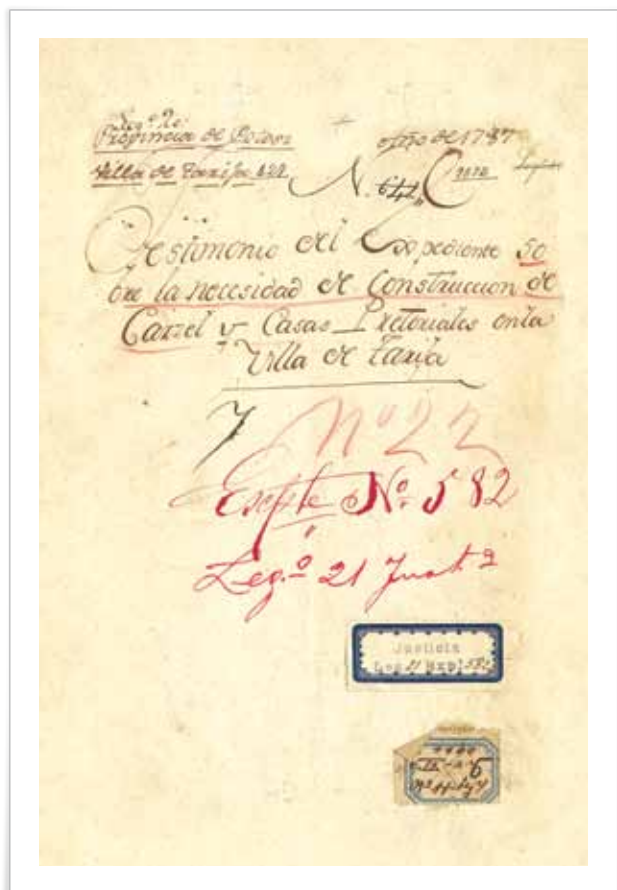 Provincia de Potosi
Año de 1787
Villa de Tarija
N. 641
Testimonio del Expediente so
bre la necesidad de Construccion de
Carzel y Casas Pretoriales en la
Villa de Tarija
7
Nº 22
Expte Nº 582
Leg.º 21 Just.ª
Justicia
Leg 21 Exp 582